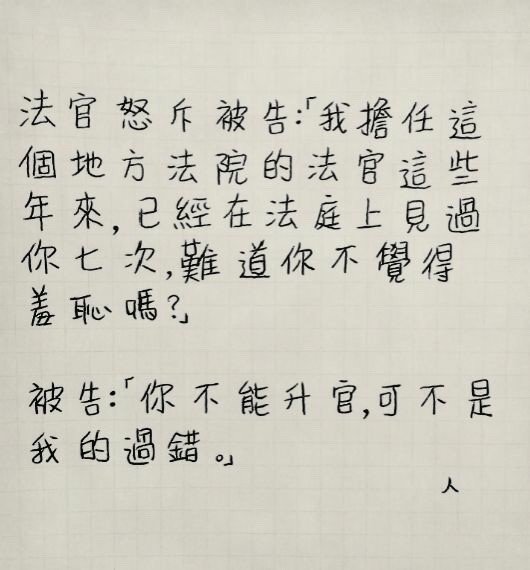 法官怒斥被告:「我擔任這
個地方法院的法官這些
年來,已經在法庭上見過
你七次,難道你不覺得
羞恥嗎?」
被告:「你不能升官,可不是
我的過錯。」
人